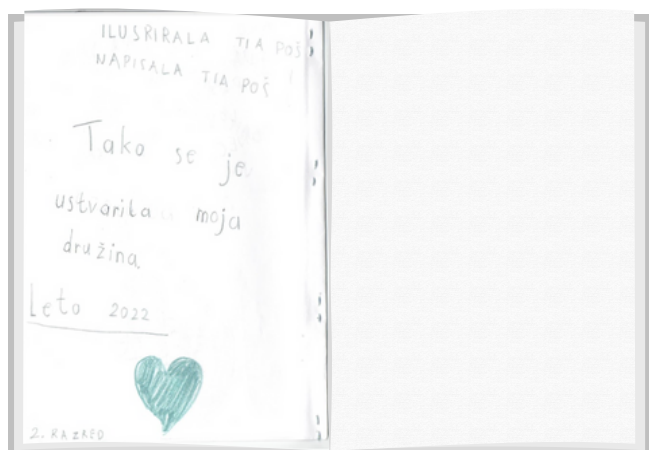 ILUSRIRALA TIA POŠ
NAPISALA TIA POŠ
Tako se je
ustvarila moja
družina.
Leto 2022
2. RAZRED